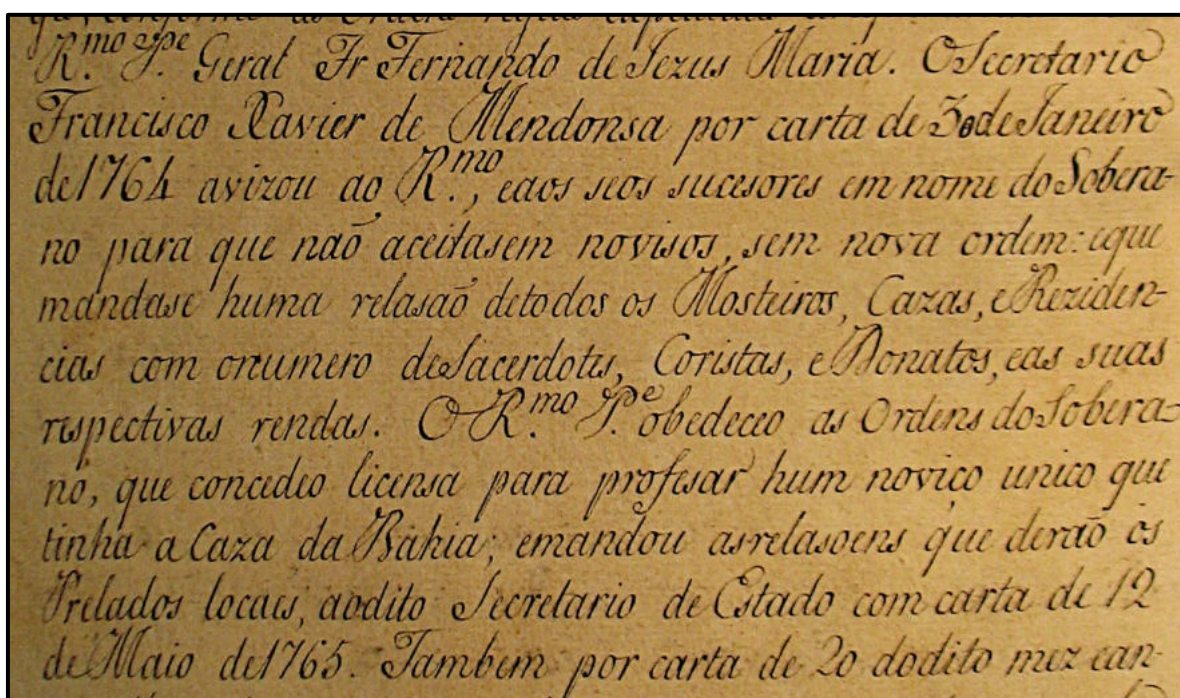 que, conforme as Ordens regias
R.mo P.e Geral Fr Fernando de Jezus Maria. O Secretario
Francisco Xavier de Mendonsa por carta de 30 de Janeiro
de 1764 avizou ao R.mo, eaos seos sucesores em nome do Sobera-
no para que naõ aceitasem novisos, sem nova ordem: eque
mandase huma relasaõ detodos os Mosteiros, Cazas, e Reziden-
cias com onumero de Sacerdotes, Coristas, e Donatos, eas suas
respectivas rendas. O R.mo P.e obedeceo as Ordens do Sobera-
no, que concedeo licensa para profesar hum noviço unico que
tinha a Caza da Bahia; emandou asrelasoens que deraõ os
Prelados locaes, aodito Secretario de Estado com carta de 12
de Maio de 1765. Tambem por carta de 20 dodito mez ean-